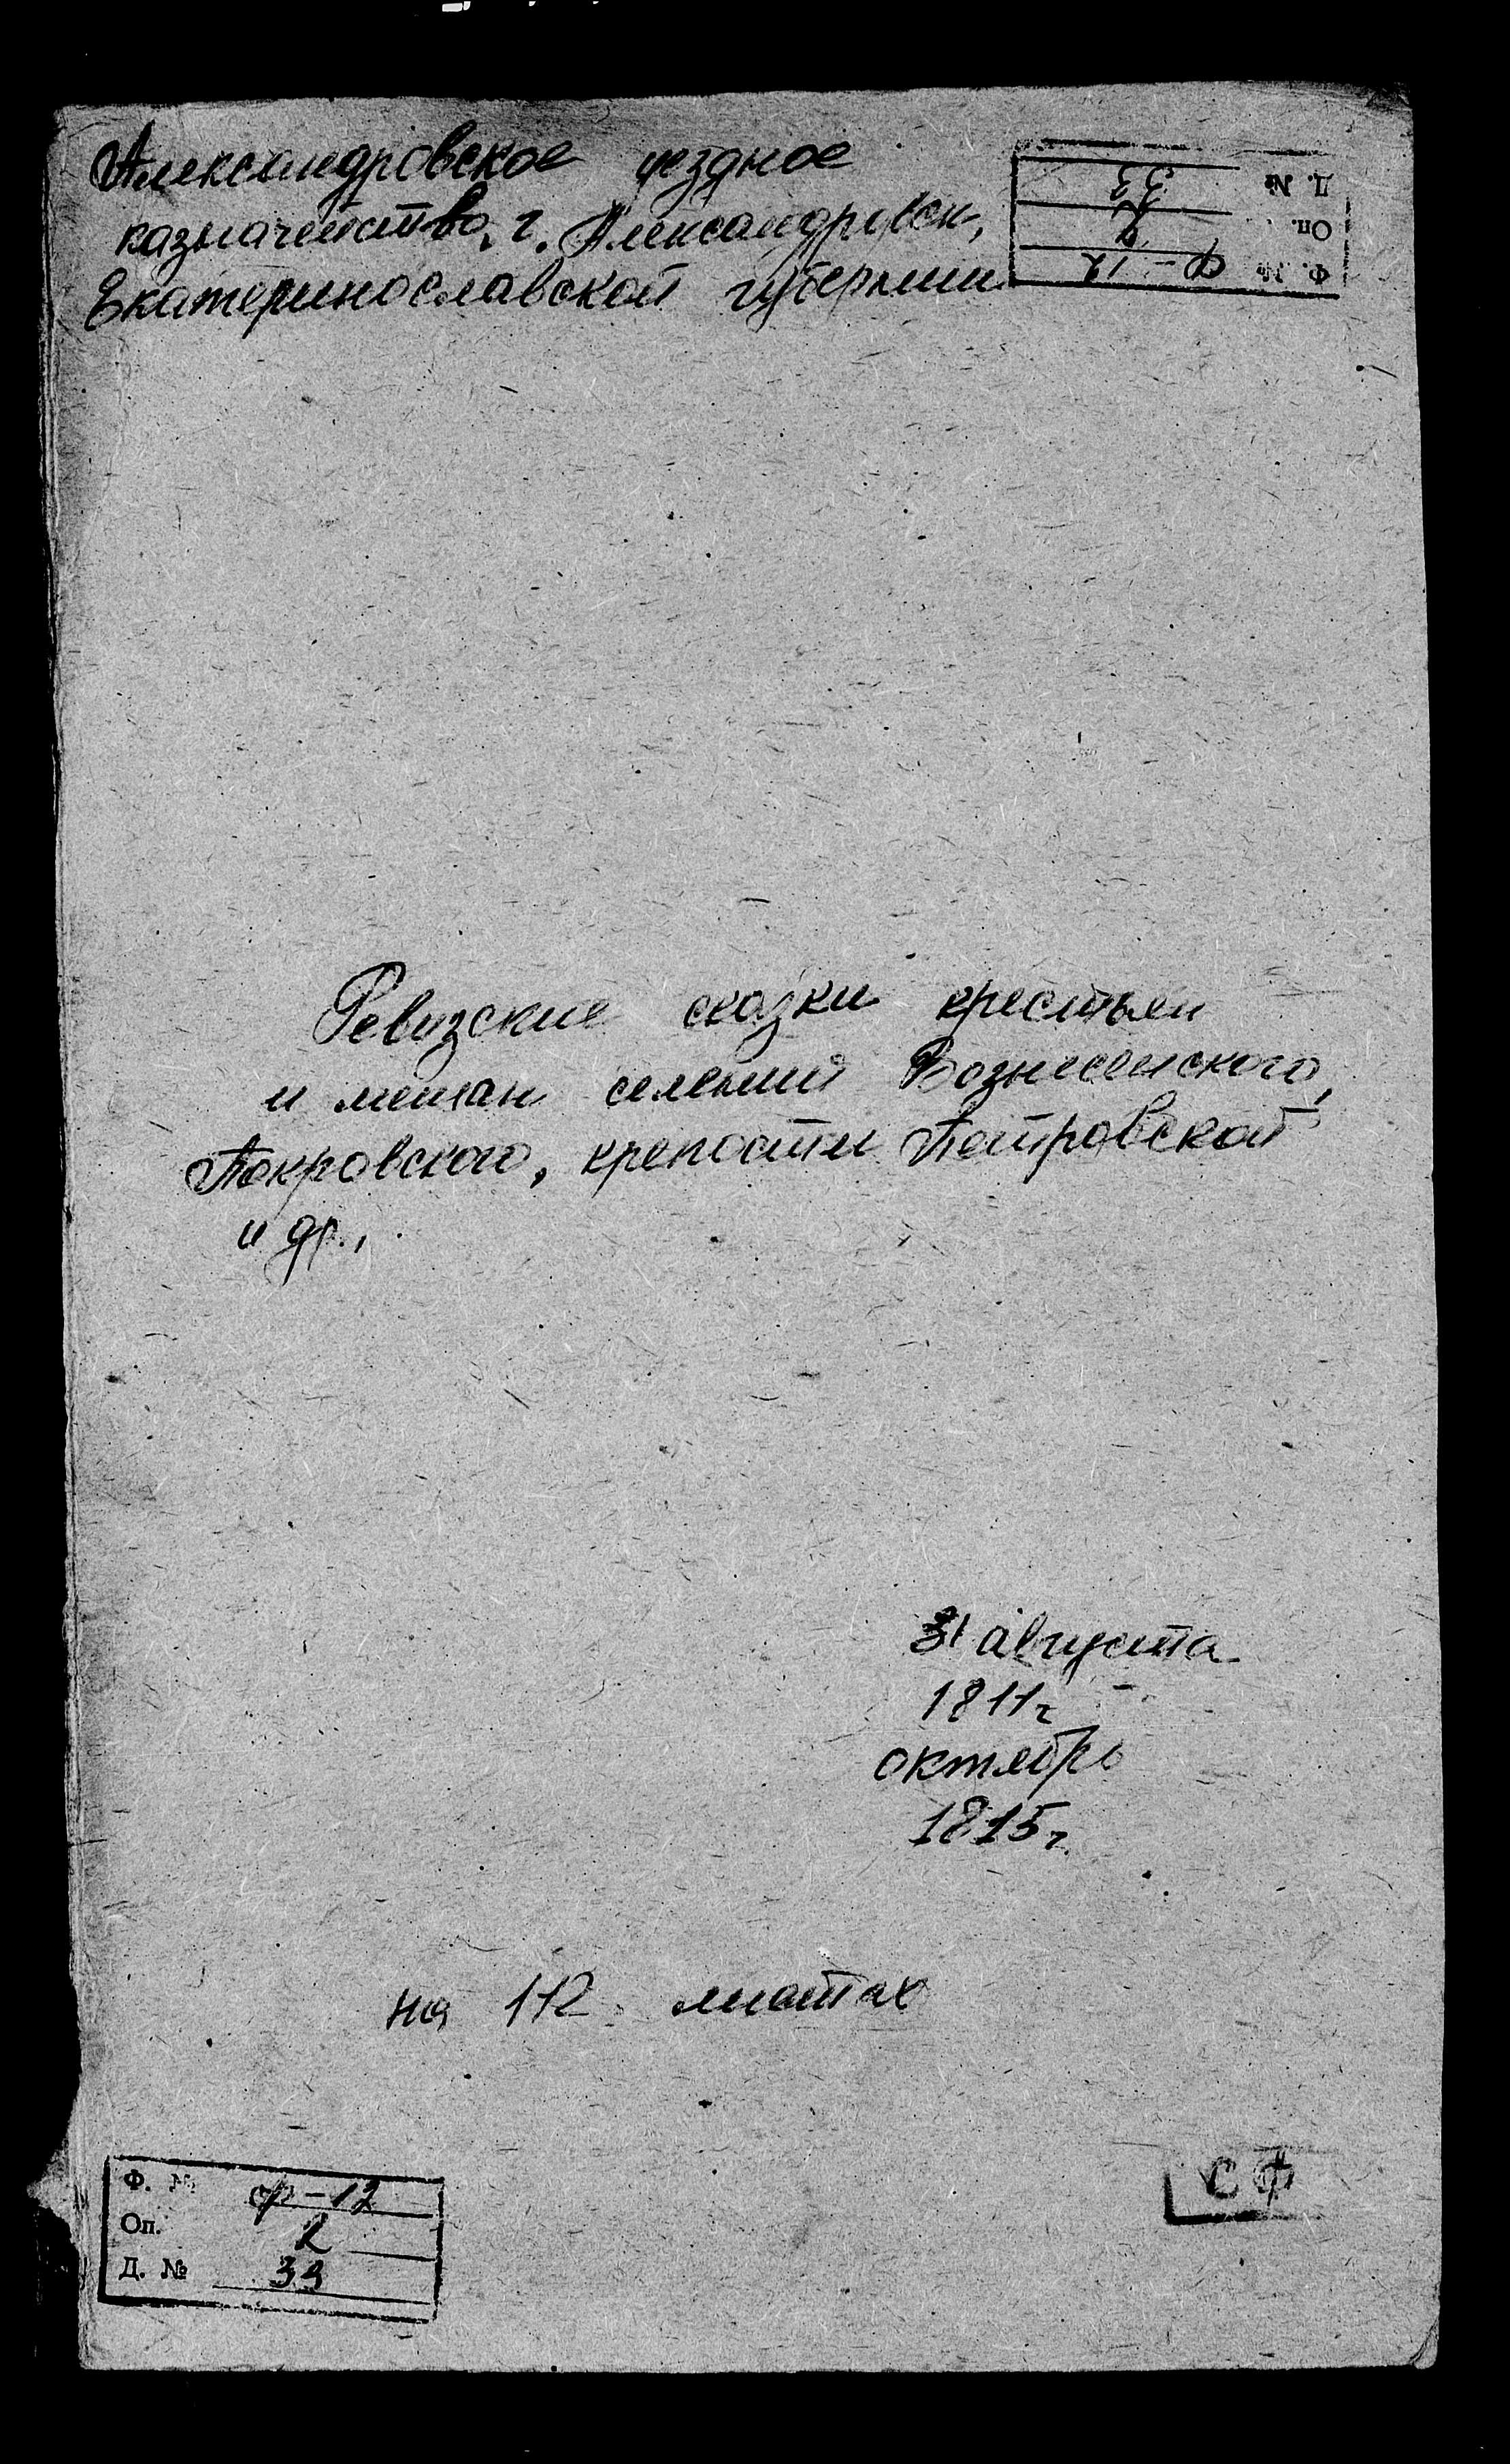 Александровское уездное
казначейство, г. Александровск,
Екатеринославской губернии
Д. №
Оп. 2
Ф. № ф-12
Ревизские сказки крестьян
и мещан селений Вознесенского,
Покровского, крепости Петровской
и др.,
31 августа
1811г
октябрь
1815г.
на 112 листах
Ф. № ф-12
Оп. 2
Д. №
СФ